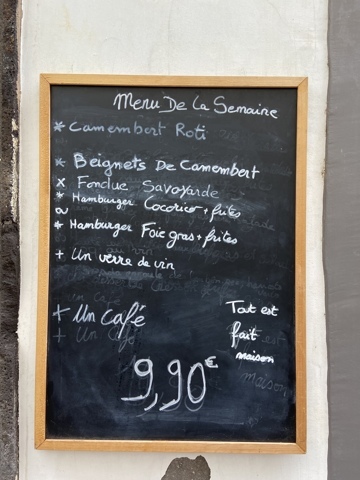 Menu De La Semaine
* Camembert Roti
* Beignets De Camembert
x Fondue Savoyarde
* Hamburger Cocorico + frites
* Hamburger Foie gras + frites
+ Un verre de vin
+ Un café
+ Un Café
Tout est
fait
maison
maison
9,90€